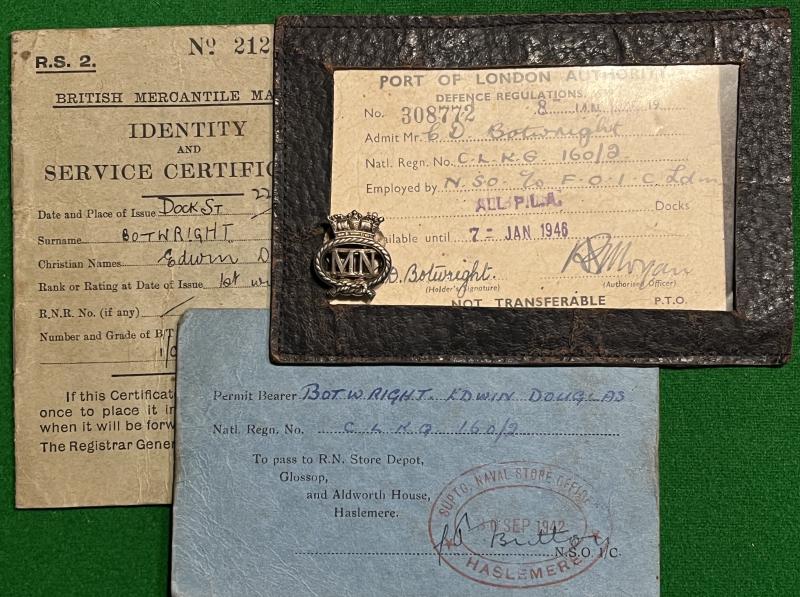 R.S. 2.
No 212
BRITISH MERCANTILE MA
IDENTITY
AND
SERVICE CERTIFIC
Date and Place of Issue Dock St 22
Surname BOTWRIGHT
Christian Names Edwin D
Rank or Rating at Date of Issue 1st
R.N.R. No. (if any)
Number and Grade of B/T
If this Certificat
once to place it in
when it will be forw
The Registrar Gener
PORT OF LONDON AUTHORITY
DEFENCE REGULATIONS,
No. 308772 8- JAN 19
Admit Mr. E D Botwright
Natl. Regn. No. C.L.K.G 160/2
Employed by N.S.O. % F.O.I.C Ldn
ALL P.L.A. Docks
ailable until 7- JAN 1946
MN
D. Botwright.
(Holder's Signature) (Authorised Officer)
NOT TRANSFERABLE P.T.O.
Permit Bearer BOTWRIGHT. EDWIN DOUGLAS
Natl. Regn. No. C L K G 160/2
To pass to R.N. Store Depot,
Glossop,
and Aldworth House,
Haslemere.
SUPTG. NAVAL STORE OFFICE
SEP 1942
N.S.O. I/C.
HASLEMERE